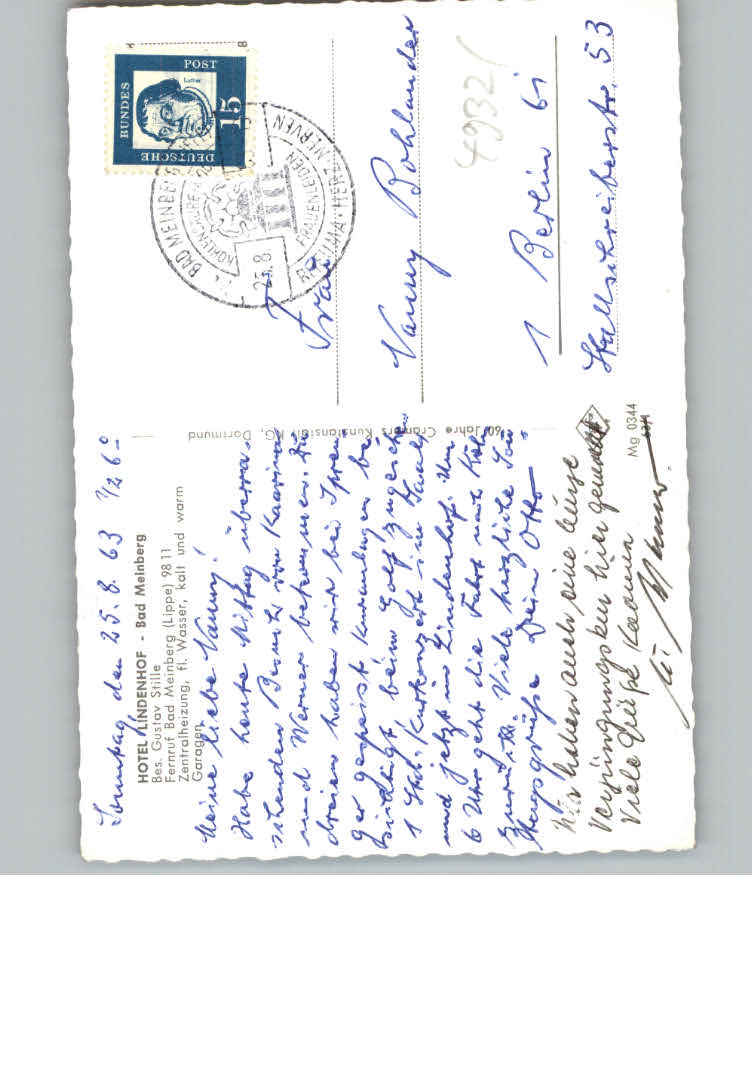 Sonntag, den 25.8.63 1/2 6°°
HOTEL LINDENHOF - Bad Meinberg
Bes. Gustav Stille
Fernruf Bad Meinberg (Lippe) 98 11
Zentralheizung, fl. Wasser, kalt und warm
Garagen
Meine liebe Nanny!
Habe heute Mittag überra-
schenden Besuch von Kaarina
und Werner bekommen. Zu
dreien haben wir bei
gespeist
beim Golf zugesehen
1 Std. Kurkonzert im
und jetzt im Lindenhof. Um
6 Uhr geht die Fahrt nach Köln
zurück. Viele herzliche Son
tagsgrüße Dein Otto
Wir haben auch eine kurze
Verjüngungskur hier gemacht.
Viele Grüße Kaarina
u. Werner
60 Jahre Cramers Kunstanstalt KG, Dortmund
Mg 0344
DEUTSCHE BUNDES POST
15
Luther
BAD MEINBERG
25.8.
FRAUENLEIDEN
RHEUMA · HERZ · NERVEN
4932/
Frau
Nanny Bohlander
1 Berlin 61
Stallschreiberstr. 53